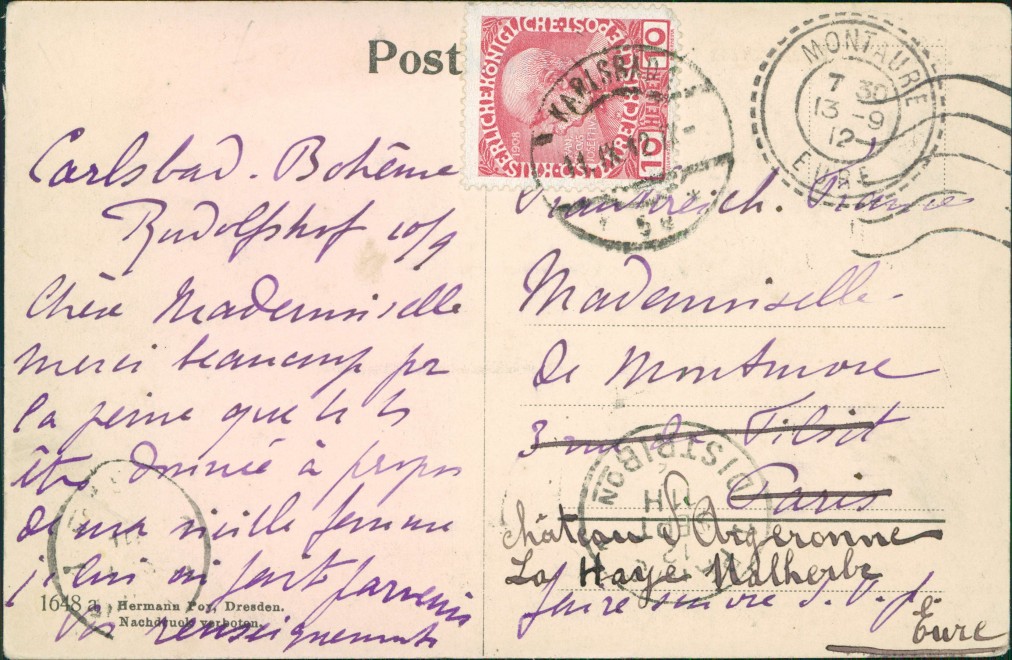 Post
KAISERLICHE KÖNIGLICHE ÖST. POST
10 HELLER 10
1908
KARLSBAD
11.IX.12
MONTAURE
7 30
13 -9
12
EURE
Carlsbad. Bohême
Rudolfshof 10/9
Chère Mademoiselle
merci beaucoup pr
la peine que
êtes donnée à propos
de ma vieille femme
je lui ai fait parvenir
renseignements
1648 a Hermann Poy, Dresden.
Nachdruck verboten.
Frankreich. France
Mademoiselle
de Montmore
3 rue de Tilsit
Paris
DISTRIBON
château d'Argeronne
La Haye Malherbe
faire suivre S. V. p.
Eure